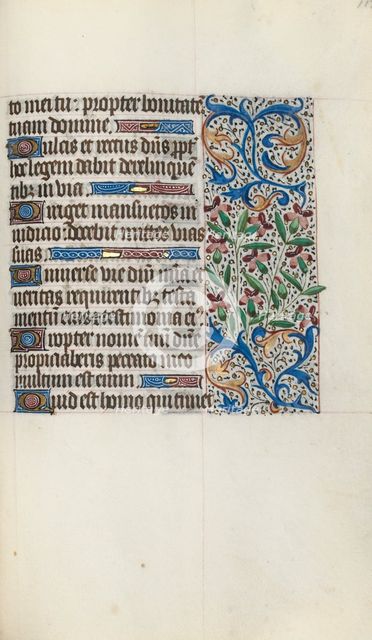 to mei tu: propter bonitatē
tuam domine.
Dulcis et rectus dn̄s ppt̄
hoc legem dabit derelinquē
tibz in via
Diriget mansuetos in
iudicio: docebit mites vias
suas
Universe vie dn̄i mia et
veritas requirentibz testa
mentū eius et testimonia ei
Propter nomē tuū dn̄e
propiciaberis peccato meo
multum est enim
Quid est homo qui timet